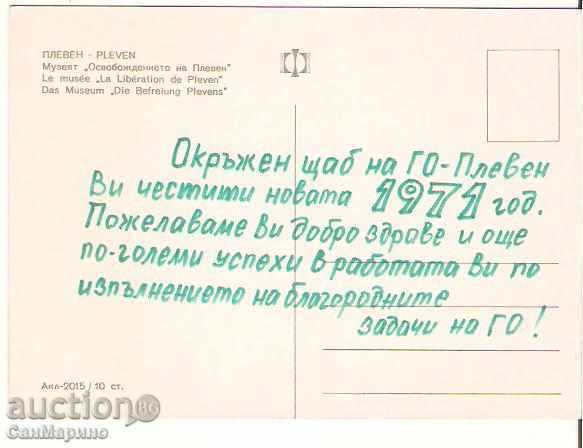 ПЛЕВЕН - PLEVEN
Музеят „Освобождението на Плевен"
Le musée „La Libération de Pleven"
Das Museum „Die Befreiung Plevens"
Окръжен щаб на ГО-Плевен
Ви честити новата 1971 год.
Пожелаваме Ви добро здраве и още
по-големи успехи в работата Ви по
изпълнението на благородните
задачи на ГО!
Акл-2015/10 ст.
auction BG
СанМарино